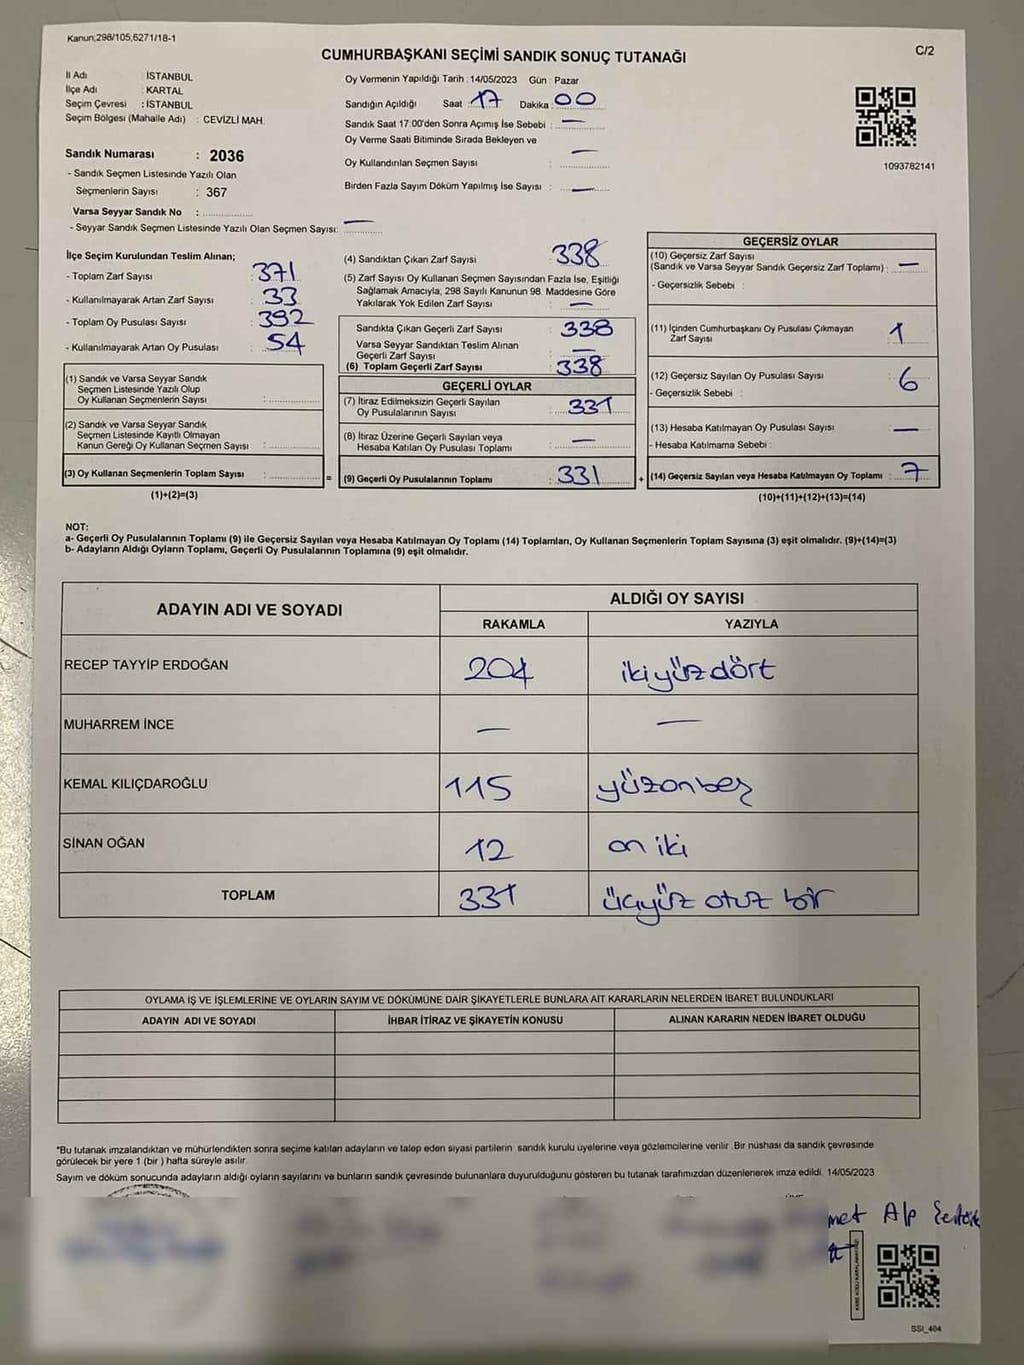 Kanun;298/105,6271/18-1
C/2
CUMHURBAŞKANI SEÇİMİ SANDIK SONUÇ TUTANAĞI
İl Adı İSTANBUL
İlçe Adı : KARTAL
Seçim Çevresi : İSTANBUL
Seçim Bölgesi (Mahalle Adı) : CEVİZLİ MAH.
Sandık Numarası : 2036
- Sandık Seçmen Listesinde Yazılı Olan
Seçmenlerin Sayısı : 367
Varsa Seyyar Sandık No :
- Seyyar Sandık Seçmen Listesinde Yazılı Olan Seçmen Sayısı: —
Oy Vermenin Yapıldığı Tarih :14/05/2023 Gün : Pazar
Sandığın Açıldığı Saat : 17 Dakika : 00
Sandık Saat 17:00'den Sonra Açımış İse Sebebi : —
Oy Verme Saati Bitiminde Sırada Bekleyen ve
Oy Kullandırılan Seçmen Sayısı : —
Birden Fazla Sayım Döküm Yapılmış İse Sayısı : —
1093782141
İlçe Seçim Kurulundan Teslim Alınan;
- Toplam Zarf Sayısı : 371
- Kullanılmayarak Artan Zarf Sayısı : 33
- Toplam Oy Pusulası Sayısı : 392
- Kullanılmayarak Artan Oy Pusulası : 54
(1) Sandık ve Varsa Seyyar Sandık
Seçmen Listesinde Yazılı Olup
Oy Kullanan Seçmenlerin Sayısı :
(2) Sandık ve Varsa Seyyar Sandık
Seçmen Listesinde Kayıtlı Olmayan
Kanun Gereği Oy Kullanan Seçmen Sayısı :
(3) Oy Kullanan Seçmenlerin Toplam Sayısı :
(1)+(2)=(3)
(4) Sandıktan Çıkan Zarf Sayısı : 338
(5) Zarf Sayısı Oy Kullanan Seçmen Sayısından Fazla İse, Eşitliği
Sağlamak Amacıyla, 298 Sayılı Kanunun 98. Maddesine Göre
Yakılarak Yok Edilen Zarf Sayısı : —
Sandıkta Çıkan Geçerli Zarf Sayısı : 338
Varsa Seyyar Sandıktan Teslim Alınan
Geçerli Zarf Sayısı : —
(6) Toplam Geçerli Zarf Sayısı : 338
GEÇERLİ OYLAR
(7) İtiraz Edilmeksizin Geçerli Sayılan
Oy Pusulalarının Sayısı : 331
(8) İtiraz Üzerine Geçerli Sayılan veya
Hesaba Katılan Oy Pusulası Toplamı : —
= (9) Geçerli Oy Pusulalarının Toplamı : 331 +
GEÇERSİZ OYLAR
(10) Geçersiz Zarf Sayısı
(Sandık ve Varsa Seyyar Sandık Geçersiz Zarf Toplamı) : —
- Geçersizlik Sebebi :
(11) İçinden Cumhurbaşkanı Oy Pusulası Çıkmayan
Zarf Sayısı : 1
(12) Geçersiz Sayılan Oy Pusulası Sayısı : 6
- Geçersizlik Sebebi :
(13) Hesaba Katılmayan Oy Pusulası Sayısı : —
- Hesaba Katılmama Sebebi :
(14) Geçersiz Sayılan veya Hesaba Katılmayan Oy Toplamı : 7
(10)+(11)+(12)+(13)=(14)
NOT:
a- Geçerli Oy Pusulalarının Toplamı (9) ile Geçersiz Sayılan veya Hesaba Katılmayan Oy Toplamı (14) Toplamları, Oy Kullanan Seçmenlerin Toplam Sayısına (3) eşit olmalıdır. (9)+(14)=(3)
b- Adayların Aldığı Oyların Toplamı, Geçerli Oy Pusulalarının Toplamına (9) eşit olmalıdır.
ADAYIN ADI VE SOYADI
ALDIĞI OY SAYISI
RAKAMLA YAZIYLA
RECEP TAYYİP ERDOĞAN 204 ikiyüzdört
MUHARREM İNCE — —
KEMAL KILIÇDAROĞLU 115 yüzonbeş
SİNAN OĞAN 12 on iki
TOPLAM 331 üçyüz otuz bir
OYLAMA İŞ VE İŞLEMLERİNE VE OYLARIN SAYIM VE DÖKÜMÜNE DAİR ŞİKAYETLERLE BUNLARA AİT KARARLARIN NELERDEN İBARET BULUNDUKLARI
ADAYIN ADI VE SOYADI İHBAR İTİRAZ VE ŞİKAYETİN KONUSU ALINAN KARARIN NEDEN İBARET OLDUĞU
*Bu tutanak imzalandıktan ve mühürlendikten sonra seçime katılan adayların ve talep eden siyasi partilerin sandık kurulu üyelerine veya gözlemcilerine verilir. Bir nüshası da sandık çevresinde
görülecek bir yere 1 (bir) hafta süreyle asılır.
Sayım ve döküm sonucunda adayların aldığı oyların sayılarını ve bunların sandık çevresinde bulunanlara duyurulduğunu gösteren bu tutanak tarafımızdan düzenlenerek imza edildi. 14/05/2023
met Alp
SSI_404